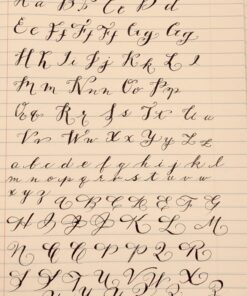 A a B b C c D d
E e F f F f G g G g
H h I i J j K k L l
M m N n n O o P p
Q q R r S s T t U u
V v W w X x Y y Z z
a b c d e f g h i j k l
m n o p q r s t u v w
x y z A B C D E F G
H I J J K L M
N O P Q R
S T U V W X